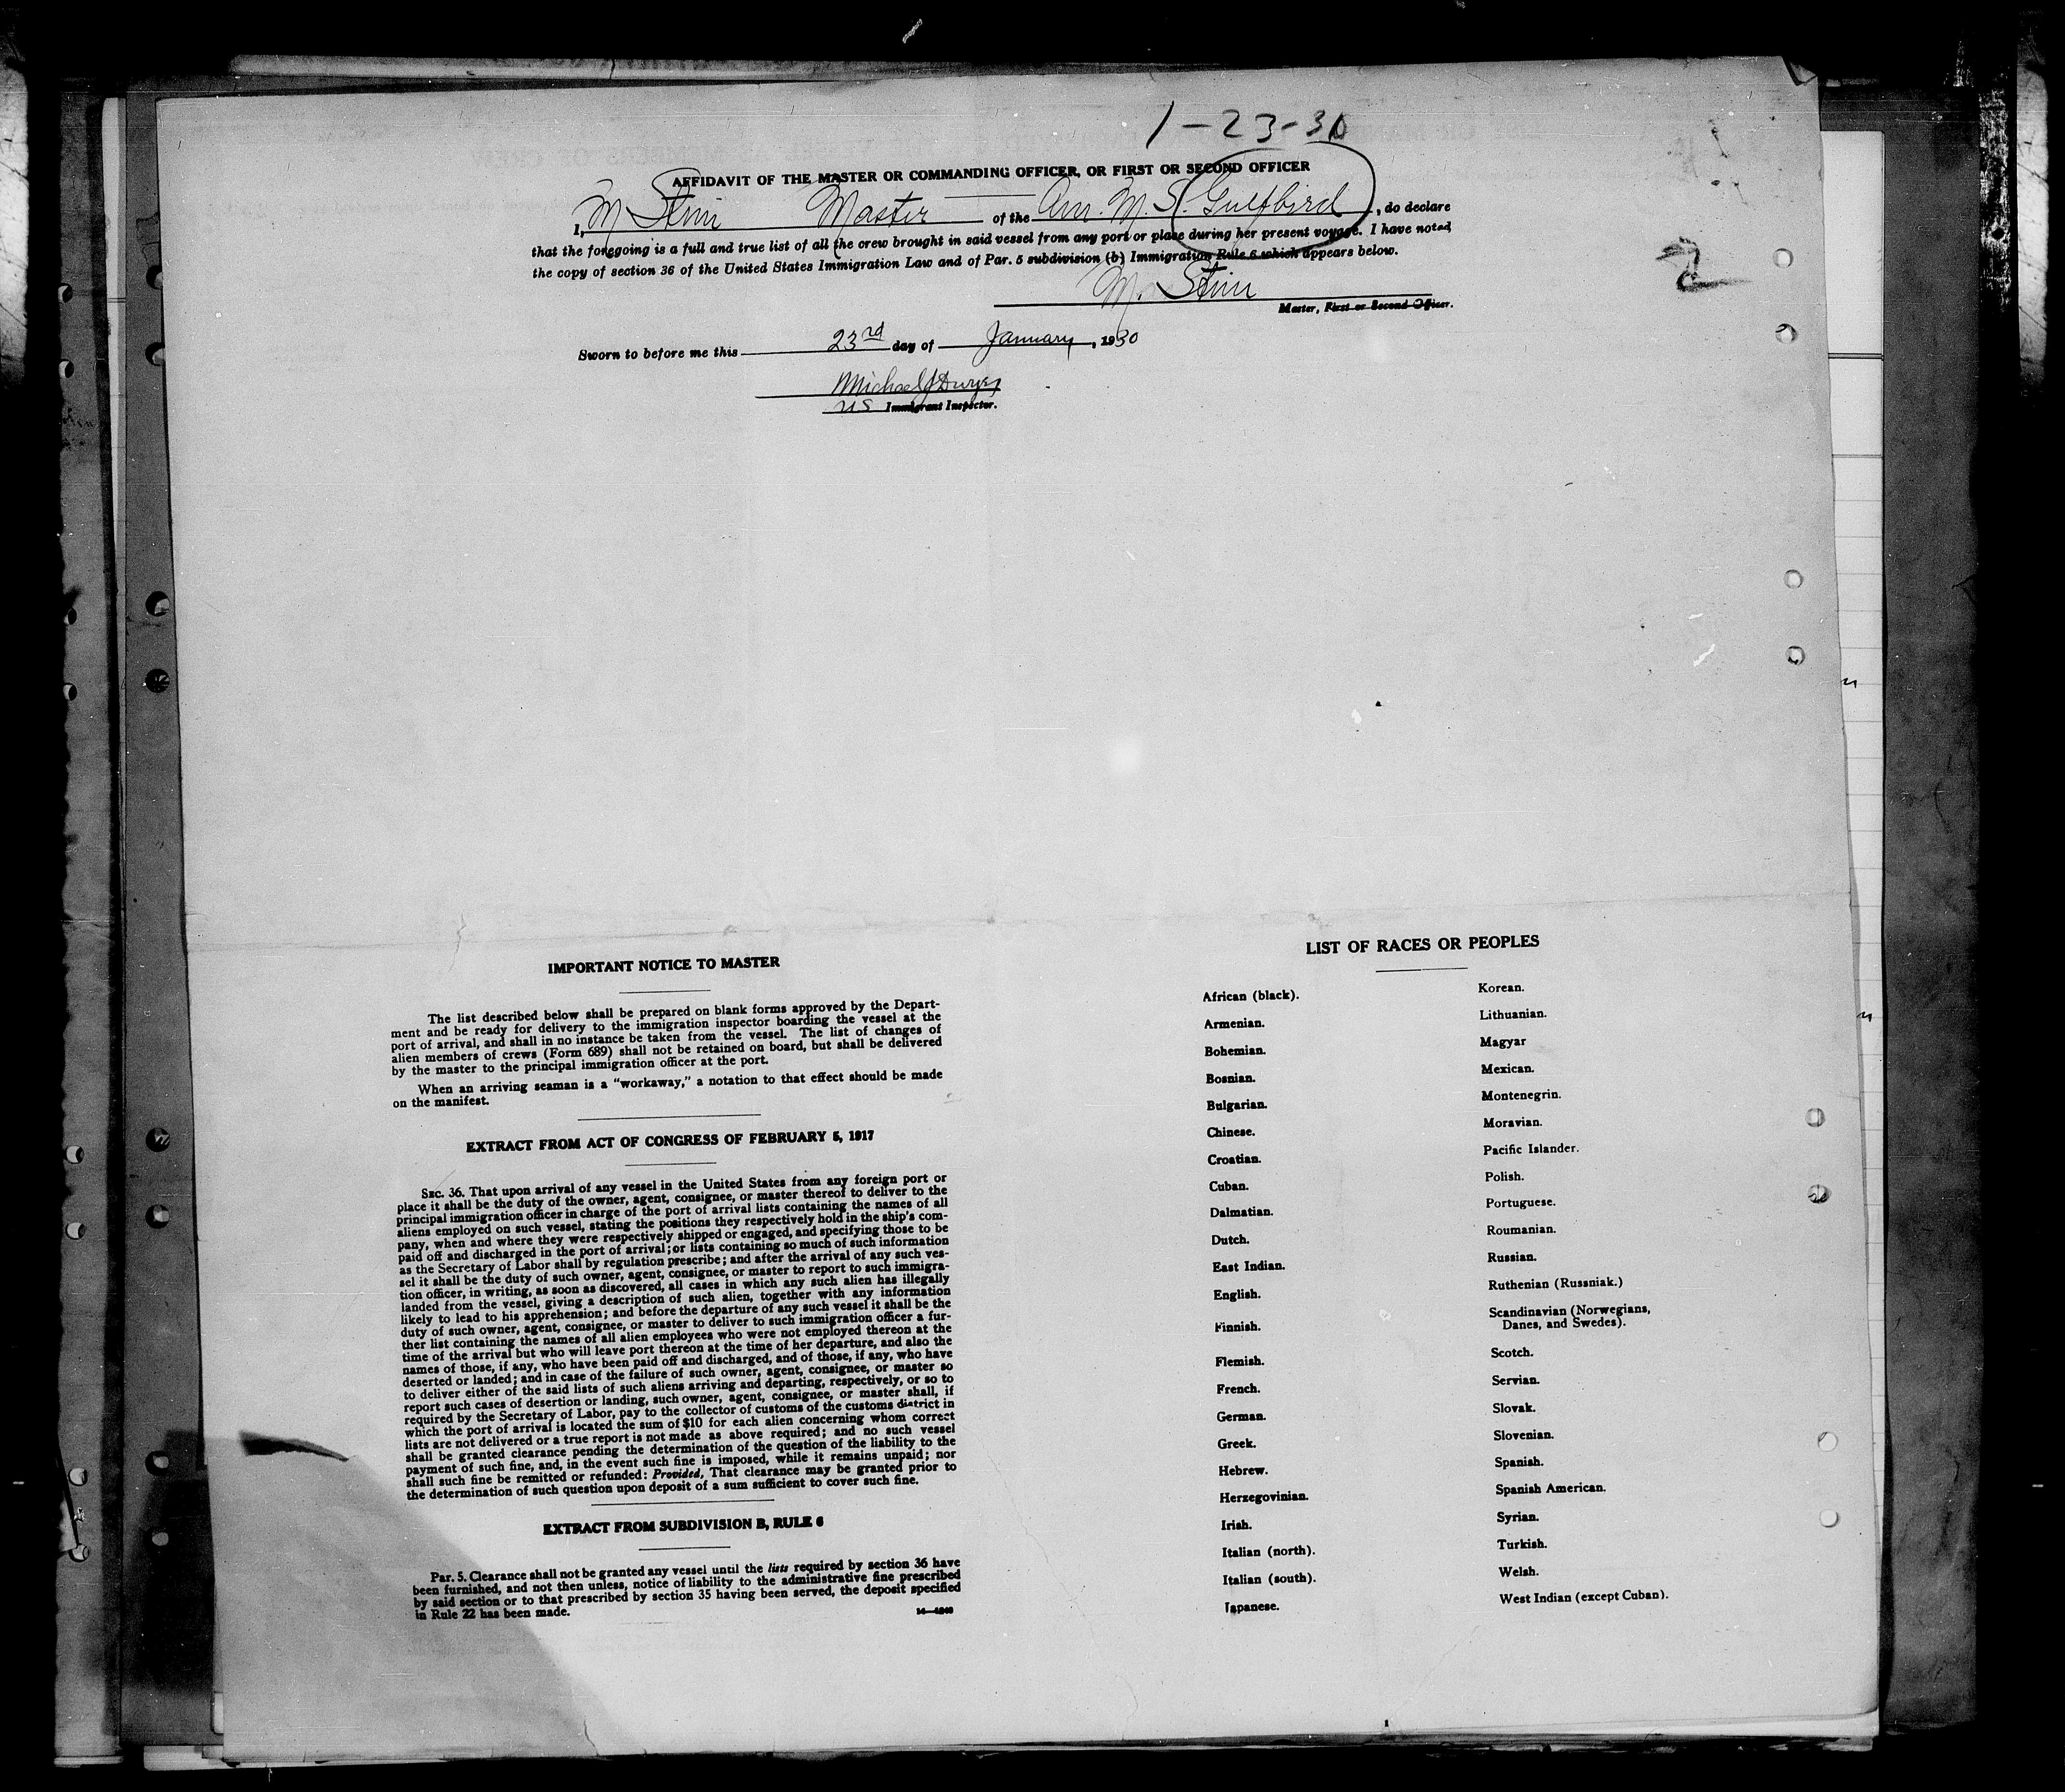 1-23-30
AFFIDAVIT OF THE MASTER OR COMMANDING OFFICER, OR FIRST OR SECOND OFFICER
I, M Master of the Am. M. S. Gulfbird, do declare
that the foregoing is a full and true list of all the crew brought in said vessel from any port or place during her present voyage. I have noted
the copy of section 36 of the United States Immigration Law and of Par. 5 subdivision (b) Immigration Rule 6 which appears below.
M.
Master, First or Second Officer.
Sworn to before me this 23rd day of January, 1930
Michael J Dwyer
US Immigrant Inspector.
IMPORTANT NOTICE TO MASTER
The list described below shall be prepared on blank forms approved by the Depart-
ment and be ready for delivery to the immigration inspector boarding the vessel at the
port of arrival, and shall in no instance be taken from the vessel. The list of changes of
alien members of crews (Form 689) shall not be retained on board, but shall be delivered
by the master to the principal immigration officer at the port.
When an arriving seaman is a "workaway," a notation to that effect should be made
on the manifest.
EXTRACT FROM ACT OF CONGRESS OF FEBRUARY 5, 1917
SEC. 36. That upon arrival of any vessel in the United States from any foreign port or
place it shall be the duty of the owner, agent, consignee, or master thereof to deliver to the
principal immigration officer in charge of the port of arrival lists containing the names of all
aliens employed on such vessel, stating the positions they respectively hold in the ship's com-
pany, when and where they were respectively shipped or engaged, and specifying those to be
paid off and discharged in the port of arrival; or lists containing so much of such information
as the Secretary of Labor shall by regulation prescribe; and after the arrival of any such ves-
sel it shall be the duty of such owner, agent, consignee, or master to report to such immigra-
tion officer, in writing, as soon as discovered, all cases in which any such alien has illegally
landed from the vessel, giving a description of such alien, together with any information
likely to lead to his apprehension; and before the departure of any such vessel it shall be the
duty of such owner, agent, consignee, or master to deliver to such immigration officer a fur-
ther list containing the names of all alien employees who were not employed thereon at the
time of the arrival but who will leave port thereon at the time of her departure, and also the
names of those, if any, who have been paid off and discharged, and of those, if any, who have
deserted or landed; and in case of the failure of such owner, agent, consignee, or master so
to deliver either of the said lists of such aliens arriving and departing, respectively, or so to
report such cases of desertion or landing, such owner, agent, consignee, or master shall, if
required by the Secretary of Labor, pay to the collector of customs of the customs district in
which the port of arrival is located the sum of $10 for each alien concerning whom correct
lists are not delivered or a true report is not made as above required; and no such vessel
shall be granted clearance pending the determination of the question of the liability to the
payment of such fine, and, in the event such fine is imposed, while it remains unpaid; nor
shall such fine be remitted or refunded: Provided, That clearance may be granted prior to
the determination of such question upon deposit of a sum sufficient to cover such fine.
EXTRACT FROM SUBDIVISION B, RULE 6
Par. 5. Clearance shall not be granted any vessel until the lists required by section 36 have
been furnished, and not then unless, notice of liability to the administrative fine prescribed
by said section or to that prescribed by section 35 having been served, the deposit specified
in Rule 22 has been made.
LIST OF RACES OR PEOPLES
African (black).
Armenian.
Bohemian.
Bosnian.
Bulgarian.
Chinese.
Croatian.
Cuban.
Dalmatian.
Dutch.
East Indian.
English.
Finnish.
Flemish.
French.
German.
Greek.
Hebrew.
Herzegovinian.
Irish.
Italian (north).
Italian (south).
Japanese.
Korean.
Lithuanian.
Magyar
Mexican.
Montenegrin.
Moravian.
Pacific Islander.
Polish.
Portuguese.
Roumanian.
Russian.
Ruthenian (Russniak.)
Scandinavian (Norwegians,
Danes, and Swedes).
Scotch.
Servian.
Slovak.
Slovenian.
Spanish.
Spanish American.
Syrian.
Turkish.
Welsh.
West Indian (except Cuban).